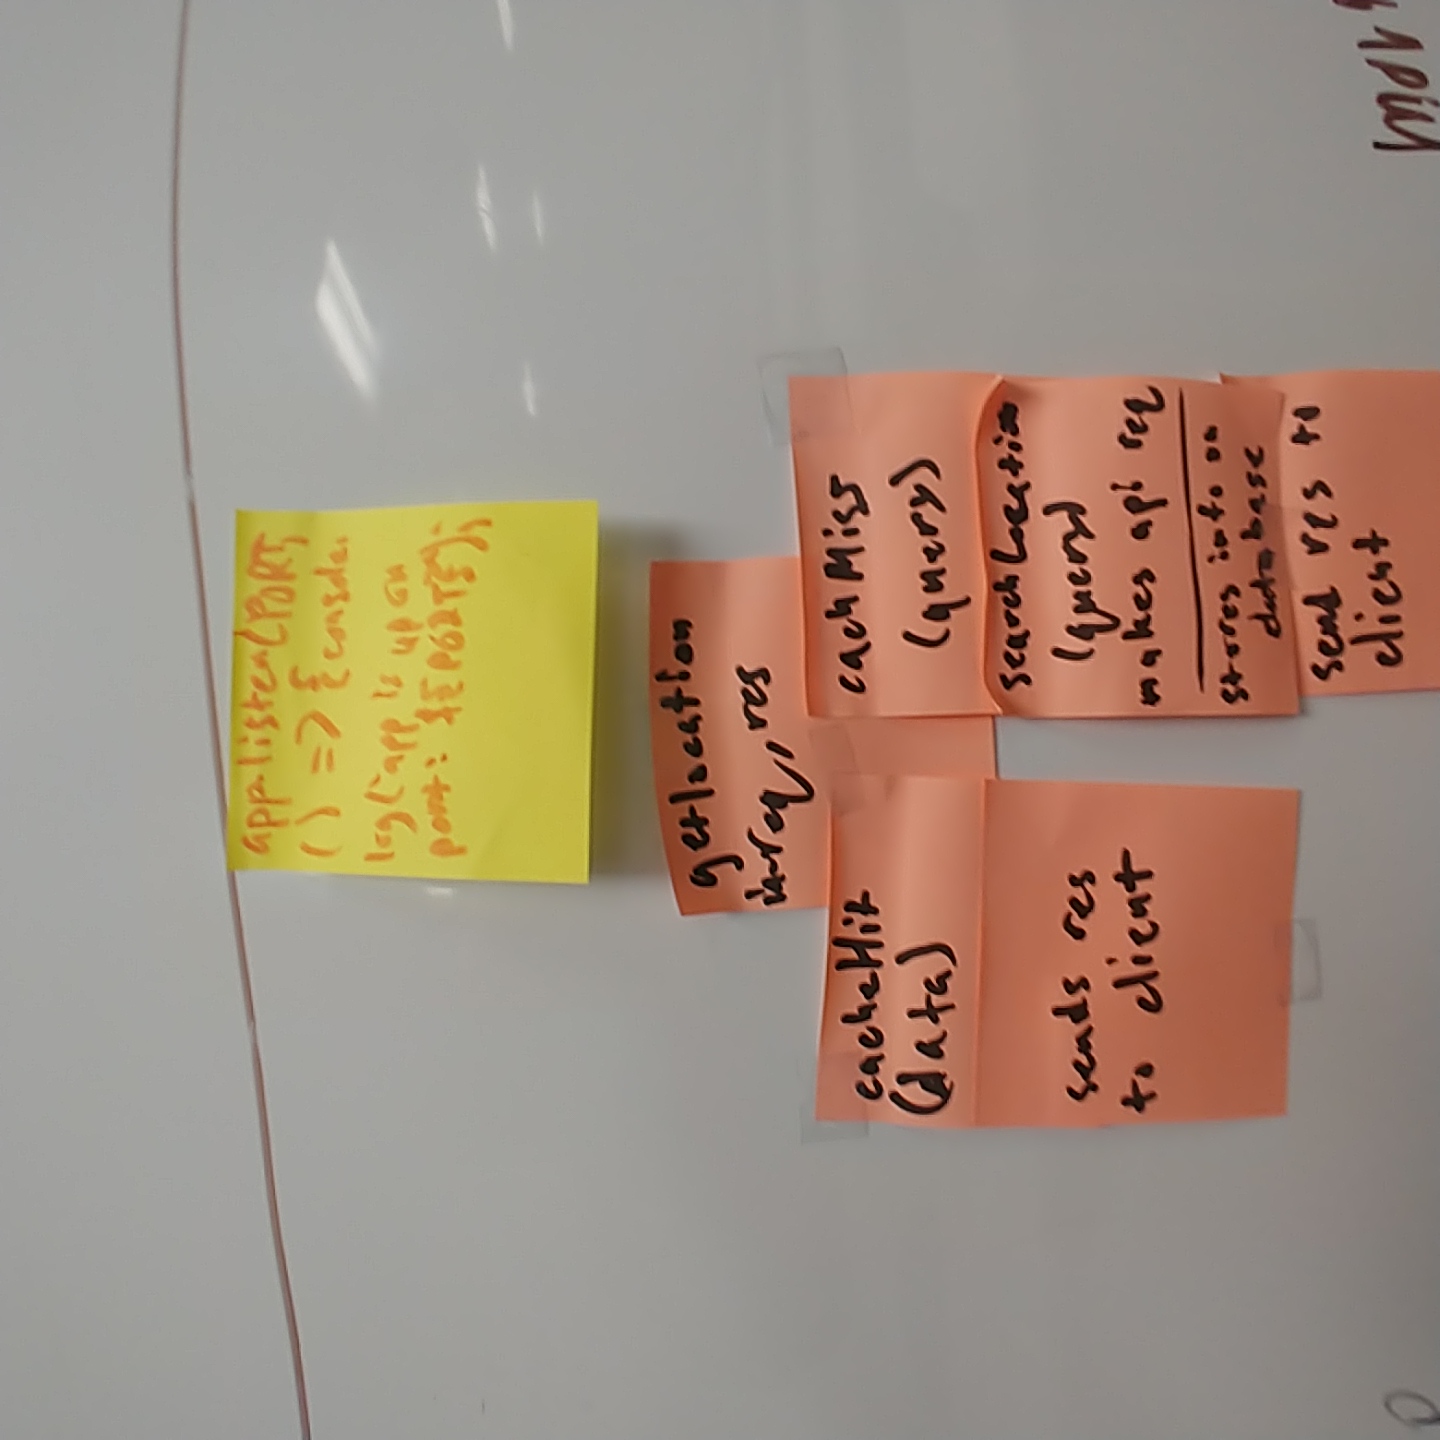 app.listen(PORT,
() => {console.
log(`app is up on
port: ${PORT}`);
getlocation
in req, res
cacheHit
(data)
sends res
to client
cachMiss
(query)
searchLocation
(query)
makes api req
stores info on
database
send res to
client